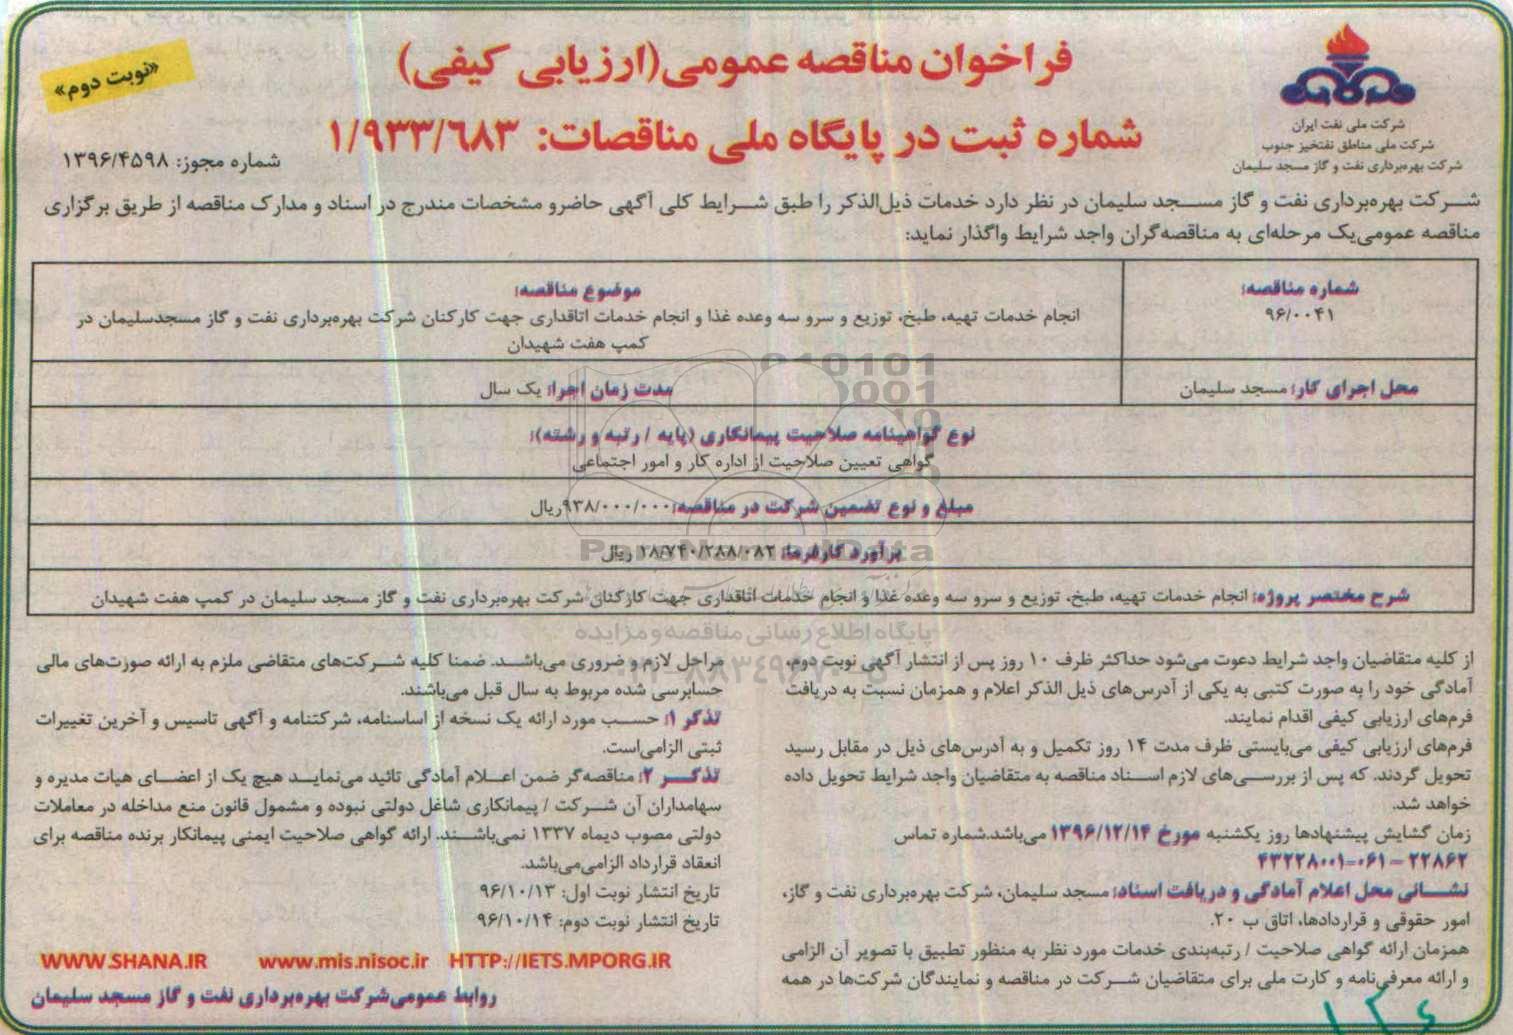 شرکت ملی نفت ایران
شرکت ملی مناطق نفتخیز جنوب
شرکت بهره‌برداری نفت و گاز مسجد سلیمان
«نوبت دوم»
فراخوان مناقصه عمومی(ارزیابی کیفی)
شماره ثبت در پایگاه ملی مناقصات: ۱/۹۳۳/٦٨٣
شماره مجوز: ۱۳۹۶/۴۵۹۸
شرکت بهره‌برداری نفت و گاز مسجد سلیمان در نظر دارد خدمات ذیل‌الذکر را طبق شرایط کلی آگهی حاضرو مشخصات مندرج در اسناد و مدارک مناقصه از طریق برگزاری
مناقصه عمومی‌یک مرحله‌ای به مناقصه‌گران واجد شرایط واگذار نماید:
شماره مناقصه:
۹۶/۰۰۴۱
موضوع مناقصه:
انجام خدمات تهیه، طبخ، توزیع و سرو سه وعده غذا و انجام خدمات اتاقداری جهت کارکنان شرکت بهره‌برداری نفت و گاز مسجدسلیمان در
کمپ هفت شهیدان
محل اجرای کار: مسجد سلیمان
مدت زمان اجرا: یک سال
نوع گواهینامه صلاحیت پیمانکاری (پایه / رتبه و رشته):
گواهی تعیین صلاحیت از اداره کار و امور اجتماعی
مبلغ و نوع تضمین شرکت در مناقصه: ۹۳۸/۰۰۰/۰۰۰ریال
برآورد کارفرما: ۱۸/۷۴۰/۲۸۸/۰۸۲ ریال
شرح مختصر پروژه: انجام خدمات تهیه، طبخ، توزیع و سرو سه وعده غذا و انجام خدمات اتاقداری جهت کارکنان شرکت بهره‌برداری نفت و گاز مسجد سلیمان در کمپ هفت شهیدان
از کلیه متقاضیان واجد شرایط دعوت می‌شود حداکثر ظرف ۱۰ روز پس از انتشار آگهی نوبت دوم،
آمادگی خود را به صورت کتبی به یکی از آدرس‌های ذیل الذکر اعلام و همزمان نسبت به دریافت
فرم‌های ارزیابی کیفی اقدام نمایند.
فرم‌های ارزیابی کیفی می‌بایستی ظرف مدت ۱۴ روز تکمیل و به آدرس‌های ذیل در مقابل رسید
تحویل گردند. که پس از بررسی‌های لازم اسناد مناقصه به متقاضیان واجد شرایط تحویل داده
خواهد شد.
زمان گشایش پیشنهادها روز یکشنبه مورخ ۱۳۹۶/۱۲/۱۴ می‌باشد.شماره تماس
۲۲۸۶۲ - ۰۶۱-۴۳۲۲۸۰۰۱
نشانی محل اعلام آمادگی و دریافت اسناد: مسجد سلیمان، شرکت بهره‌برداری نفت و گاز،
امور حقوقی و قراردادها، اتاق ب ۲۰.
همزمان ارائه گواهی صلاحیت / رتبه‌بندی خدمات مورد نظر به منظور تطبیق با تصویر آن الزامی
و ارائه معرفی‌نامه و کارت ملی برای متقاضیان شرکت در مناقصه و نمایندگان شرکت‌ها در همه
مراحل لازم و ضروری می‌باشد. ضمنا کلیه شرکت‌های متقاضی ملزم به ارائه صورت‌های مالی
حسابرسی شده مربوط به سال قبل می‌باشند.
تذکر ۱: حسب مورد ارائه یک نسخه از اساسنامه، شرکتنامه و آگهی تاسیس و آخرین تغییرات
ثبتی الزامی‌است.
تذکر ۲: مناقصه‌گر ضمن اعلام آمادگی تائید می‌نماید هیچ یک از اعضای هیات مدیره و
سهامداران آن شرکت / پیمانکاری شاغل دولتی نبوده و مشمول قانون منع مداخله در معاملات
دولتی مصوب دیماه ۱۳۳۷ نمی‌باشند. ارائه گواهی صلاحیت ایمنی پیمانکار برنده مناقصه برای
انعقاد قرارداد الزامی‌می‌باشد.
تاریخ انتشار نوبت اول: ۹۶/۱۰/۱۳
تاریخ انتشار نوبت دوم: ۹۶/۱۰/۱۴
WWW.SHANA.IR www.mis.nisoc.ir HTTP://IETS.MPORG.IR
روابط عمومی‌شرکت بهره‌برداری نفت و گاز مسجد سلیمان
ParsNamadData
پایگاه اطلاع رسانی مناقصه و مزایده
۰۲۱-۸۸۳۴۹۶۷۰-۵